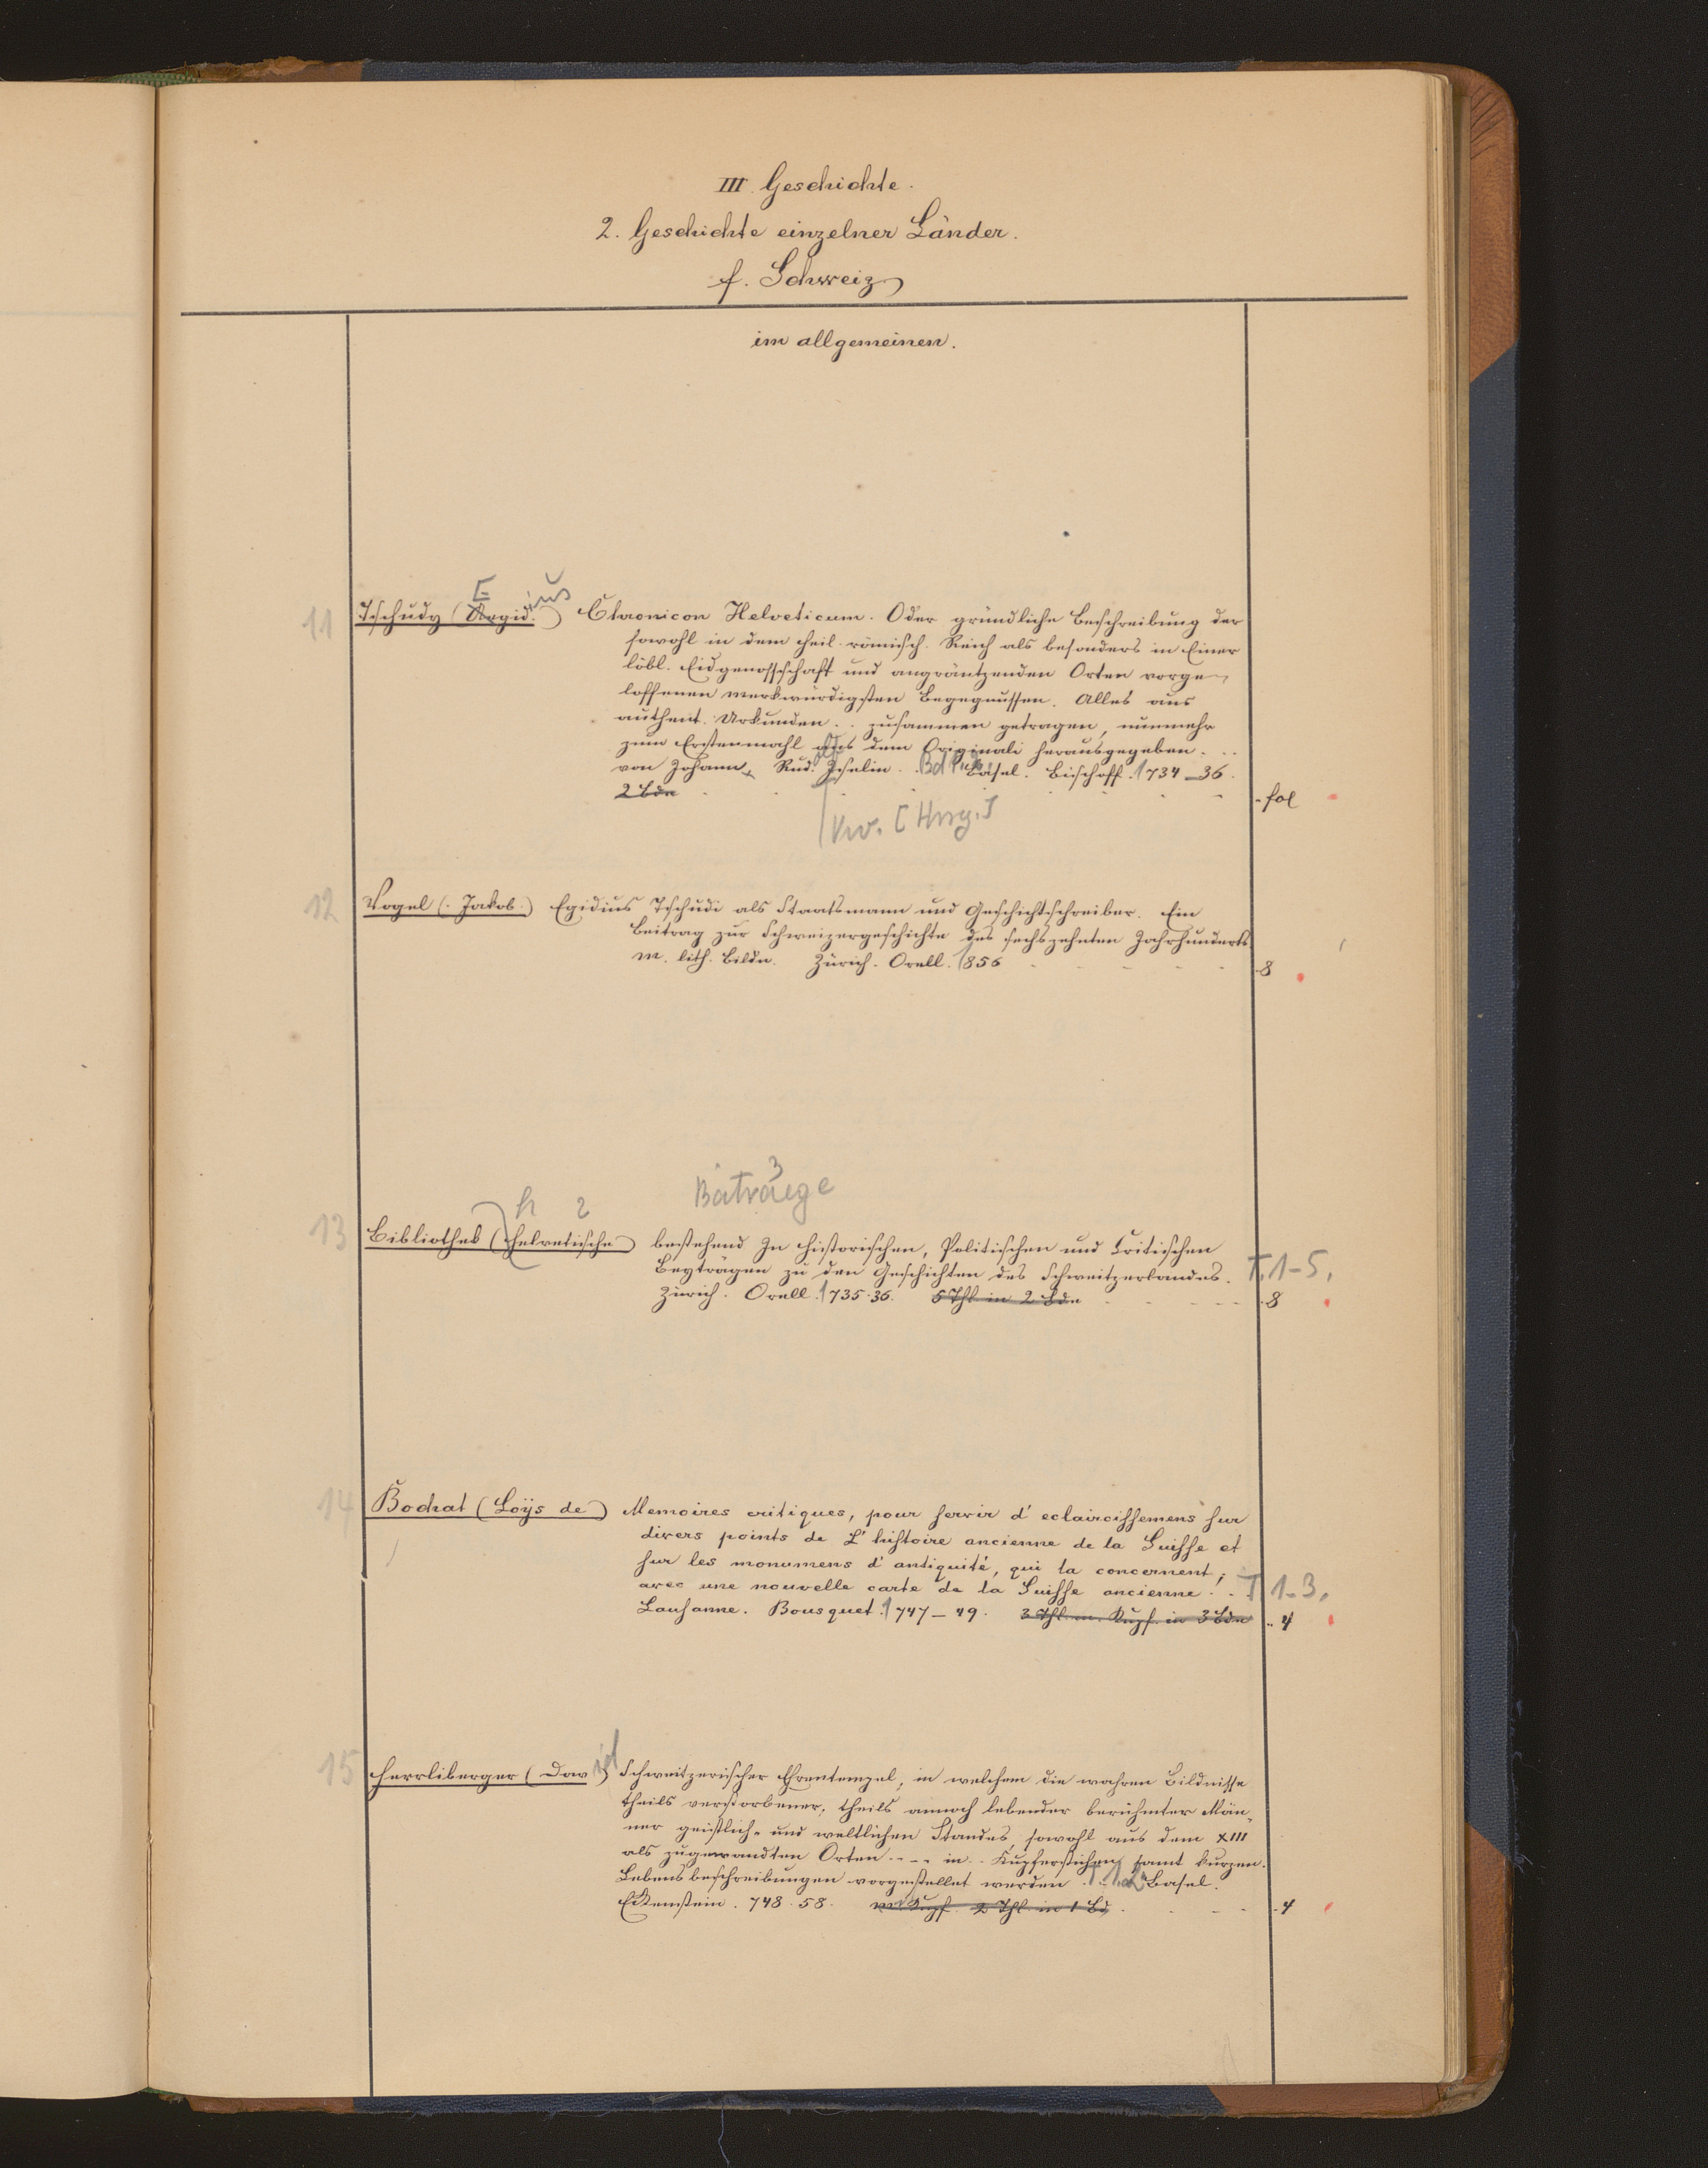 III. Geschichte.
2. Geschichte einzelner Länder.
f. Schweiz
im allgemeinen.
E ius
11 Tschudy (Aegid.) Chronicon Helveticum. Oder gründliche Beschreibung der
sowohl in dem heil. römisch. Reich als besonders in Einer
löbl. Eidgenossschaft und angräntzenden Orten vorge-
loffenen merkwürdigsten Begegnussen. Alles aus
authent. Urkunden . . zusammen getragen, nunmehr
zum Erstenmahl aus dem Originali herausgegeben. . .
von Johann Rud. Iselin. Basel. Bischoff. 1734–36.
2 Bde fol
12 Vogel (Jakob) Egidius Tschudi als Staatsmann und Geschichtschreiber. Ein
Beitrag zur Schweizergeschichte des sechszehnten Jahrhunderts
m. lith. Bildn. Zürich. Orell. 1856 8
3
h 2 Beiträege
13 Bibliothek (helvetische) bestehend In historischen, Politischen und Critischen
Beyträgen zu den Geschichten des Schweitzerlandes. T. 1-5.
Zürich. Orell. 1735.36. 5 Thl. in 2 Bdn 8
14 Bochat (Loÿs de) Memoires critiques, pour servir d'eclaircissemens sur
divers points de L'histoire ancienne de la Suisse et
sur les monumens d'antiquité, qui la concernent;
avec une nouvelle carte de la Suisse ancienne. . T 1-3.
Lausanne. Bousquet. 1747–49. 3 Thl. m. Kupf. in 3 Bdn 4
15 Herrliberger (David) Schweitzerischer Ehrentempel, in welchem die wahren Bildnisse
theils verstorbener, theils annoch lebender berühmter Män-
ner geistlich- und weltlichen Standes, sowohl aus dem XIII
als zugewandten Orten - - - in . . Kupferstichen samt kurzen.
Lebensbeschreibungen vorgestellet werden . T. 1.2 Basel.
Eckenstein. 748.58. m. Kupf. 2 Thl. in 1 Bd 4